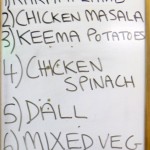 2) CHICKEN MASALA
3) KEEMA POTATOES
4) CHICKEN
SPINACH
5) DALL
6) MIXED VEG